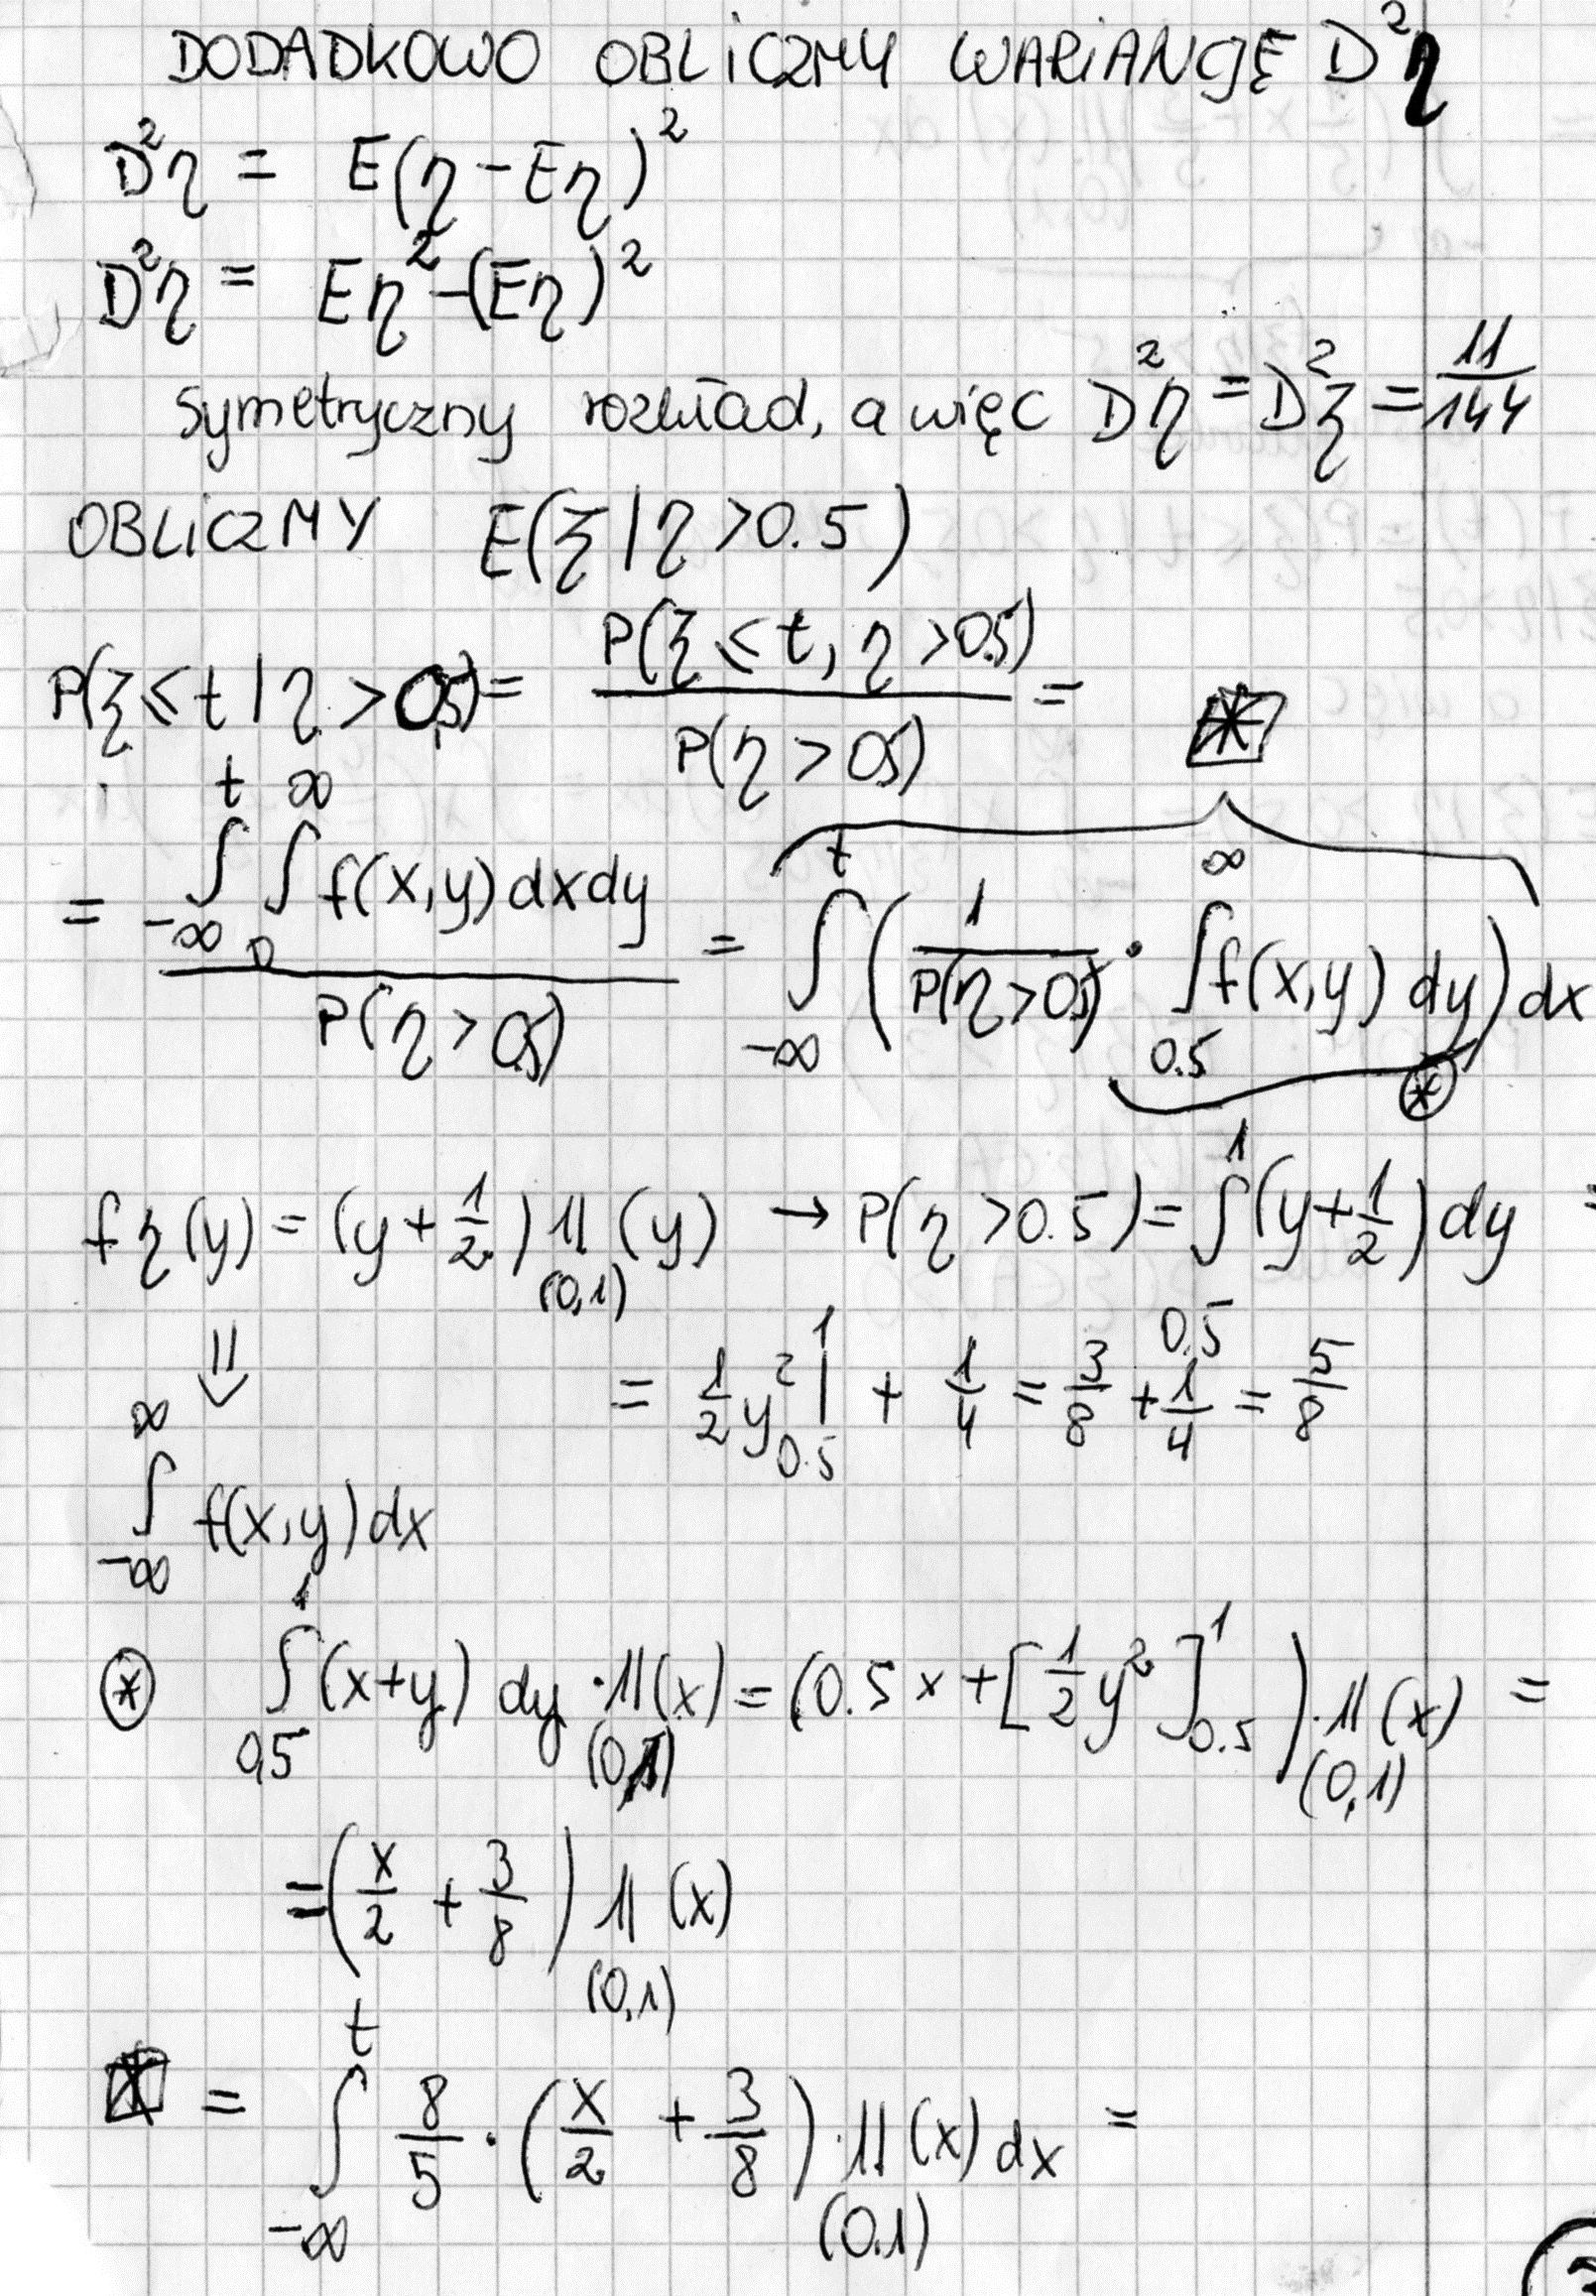 DODADKOWO OBLICZMY WARIANCJĘ D²η
D²η = E(η - Eη)²
D²η = Eη² - (Eη)²
Symetryczny rozkład, a więc D²η = D²ξ = 11/144
OBLICZMY E(ξ | η > 0.5)
P(ξ ≤ t | η > 0,5) = P(ξ ≤ t, η > 0,5) / P(η > 0,5) = [*]
= ∫_{-∞}^{t} ∫_{0}^{∞} f(x,y) dxdy / P(η > 0,5) = ∫_{-∞}^{t} ( 1/P(η > 0,5) · ∫_{0.5}^{∞} f(x,y) dy ) dx
⊛
fη(y) = (y + 1/2) 1l_{(0,1)}(y) → P(η > 0.5) = ∫_{0.5}^{1} (y + 1/2) dy =
⇓ = 1/2 y² |_{0.5}^{1} + 1/4 = 3/8 + 1/4 = 5/8
∫_{-∞}^{∞} f(x,y) dx
⊛ ∫_{0,5}^{1} (x+y) dy · 1l_{(0,1)}(x) = (0.5x + [1/2 y²]_{0.5}^{1}) · 1l_{(0,1)}(x) =
= (x/2 + 3/8) 1l_{(0,1)}(x)
[*] = ∫_{-∞}^{t} 8/5 · (x/2 + 3/8) · 1l_{(0,1)}(x) dx =